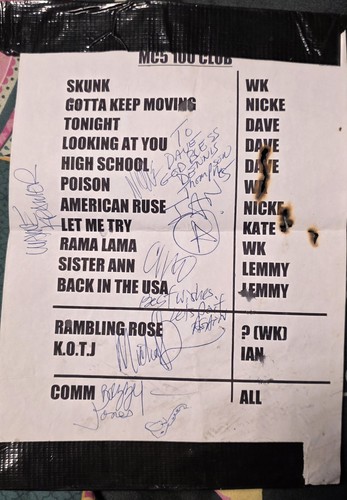 MC5 100 CLUB
SKUNK WK
GOTTA KEEP MOVING NICKE
TONIGHT DAVE
LOOKING AT YOU DAVE
HIGH SCHOOL DAVE
POISON WK
AMERICAN RUSE NICKE
LET ME TRY KATE
RAMA LAMA WK
SISTER ANN LEMMY
BACK IN THE USA LEMMY
RAMBLING ROSE ? (WK)
K.O.T.J IAN
COMM ALL
TO
DAVE
GOD BLESS
DENNIS
Thompson
IAN
A
WAYNE
KRAMER
Best wishes
Let's Do it
AGAIN
Michael
Jones